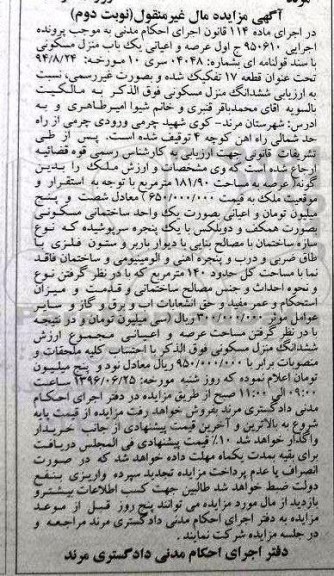 مرند
آگهی مزایده مال غیرمنقول(نوبت دوم)
در اجرای ماده ۱۱۴ قانون اجرای احکام مدنی به موجب پرونده
اجرایی ۹۵۰۶۱۰ ج اول عرصه و اعیانی یک باب منزل مسکونی
با سند قولنامه ای بشماره: ۰۴۰۴۸ سری ۱۰ مورخه: ۹۴/۸/۲۴
تحت عنوان قطعه ۱۷ تفکیک شده و بصورت غیررسمی، نسبت
به ارزیابی ششدانگ منزل مسکونی فوق الذکر به مالکیت
بالسویه آقای محمدباقر قنبری و خانم شیوا امیرطاهری و به
آدرس: شهرستان مرند- کوی شهید چرمی ورودی چرمی از راه
حد شمالی راه آهن کوچه ۴ توقیف شده است. پس از طی
تشریفات قانونی جهت ارزیابی به کارشناس رسمی قوه قضائیه
ارجاع شده است که وی مشخصات و ارزش ملک را بدین
گونه( عرصه به مساحت ۱۸۱/۹۰ مترمربع با توجه به استقرار و
موقعیت ملک به قیمت ۶۵۰/۰۰۰/۰۰۰) معادل شصت و پنج
میلیون تومان و اعیانی بصورت یک واحد ساختمانی مسکونی
بصورت همکف و دوبلکس با یک پنجره سرپوشیده که نوع
سازه ساختمان با مصالح بنایی با دیوار باربر و ستون فلزی با
طاق ضربی و درب و پنجره آهنی و آلومینیومی و ساختمان فاقد
نما با مساحت کل حدود ۱۴۰ مترمربع که با در نظر گرفتن نوع
و نحوه احداث و جنس مصالح ساختمانی و قدمت و میزان
استحکام و عمر مفید و حق انشعابات آب و برق و گاز و سایر
عوامل موثر ۳۰۰/۰۰۰/۰۰۰ ریال (سی میلیون تومان و در نتیجه
با در نظر گرفتن مساحت عرصه و اعیانی مجموع ارزش
ششدانگ منزل مسکونی فوق الذکر با احتساب کلیه ملحقات و
منصوبات برابر با ۹۵۰/۰۰۰/۰۰۰ ریال معادل نود و پنج میلیون
تومان اعلام نموده که روز شنبه مورخه: ۱۳۹۶/۰۶/۲۵ ساعت
۰۹:۰۰ الی ۱۱:۰۰ صبح از طریق مزایده در دفتر اجرای احکام
مدنی دادگستری مرند بفروش خواهد رفت مزایده از قیمت پایه
شروع به بالاترین و آخرین قیمت پیشنهادی از جانب خریدار
واگذار خواهد شد ۱۰٪ قیمت پیشنهادی فی المجلس دریافت
برای بقیه بمدت یکماه مهلت داده خواهد شد که در صورت
انصراف یا عدم پرداخت مزایده تجدید سپرده واریزی بنفع
دولت ضبط خواهد شد طالبین جهت کسب اطلاعات بیشتر و
بازدید از مال مورد مزایده می توانند پنج روز قبل از موعد
مزایده به دفتر اجرای احکام مدنی دادگستری مرند مراجعه و
در جلسه مزایده شرکت نمایند.
دفتر اجرای احکام مدنی دادگستری مرند